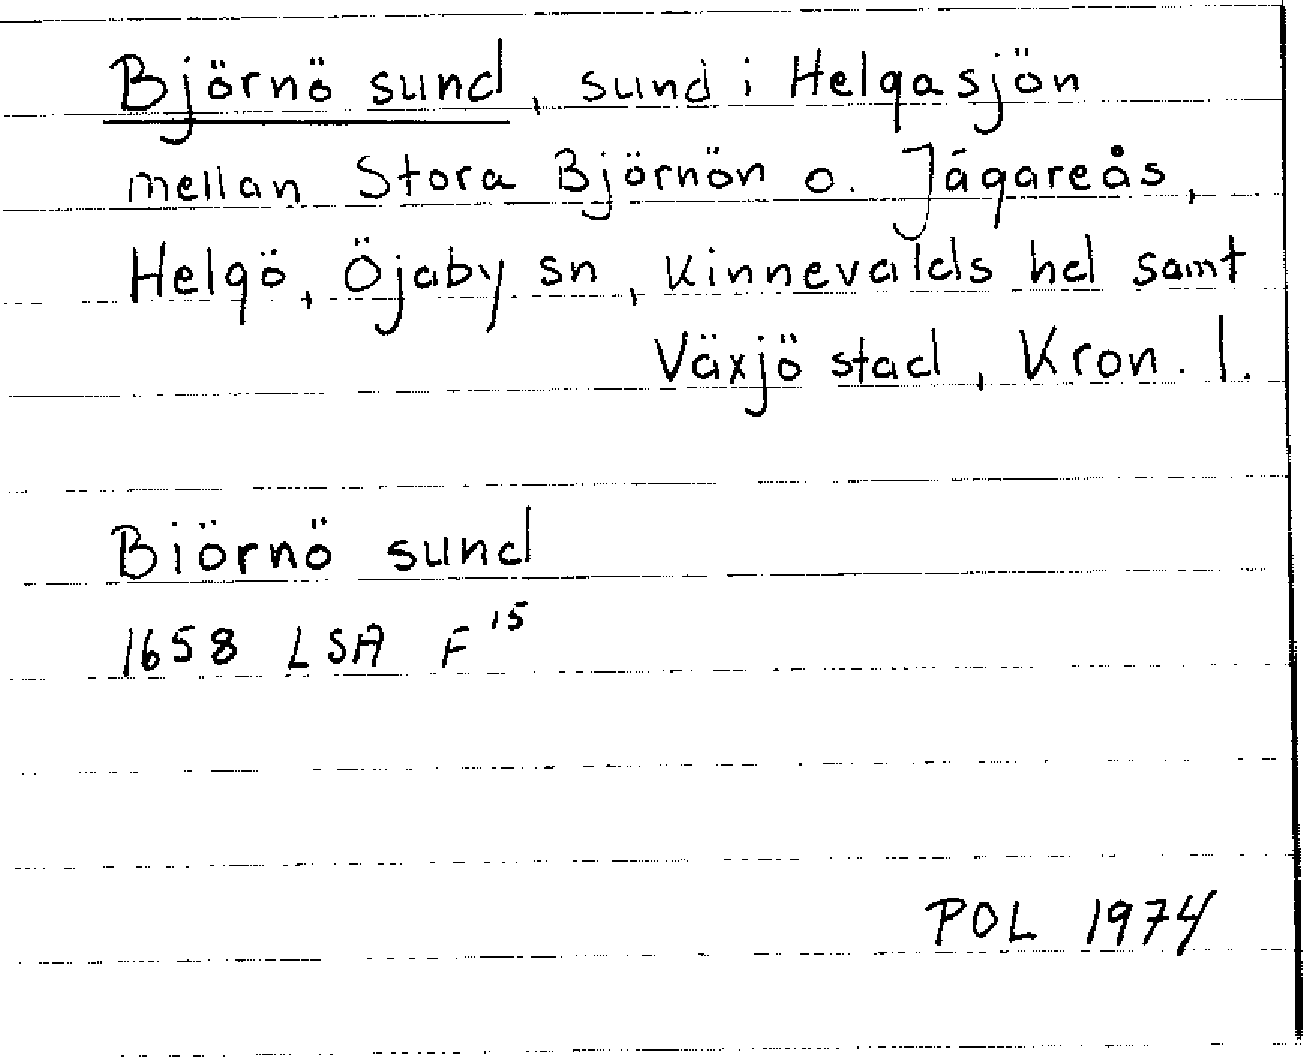 Björnö sund, sund i Helgasjön
mellan Stora Björnön o. Jägareås,
Helgö, Öjaby sn, Kinnevalds hd samt
Växjö stad, Kron. l.
Biörnö sund
1658 LSA F¹⁵
POL 1974